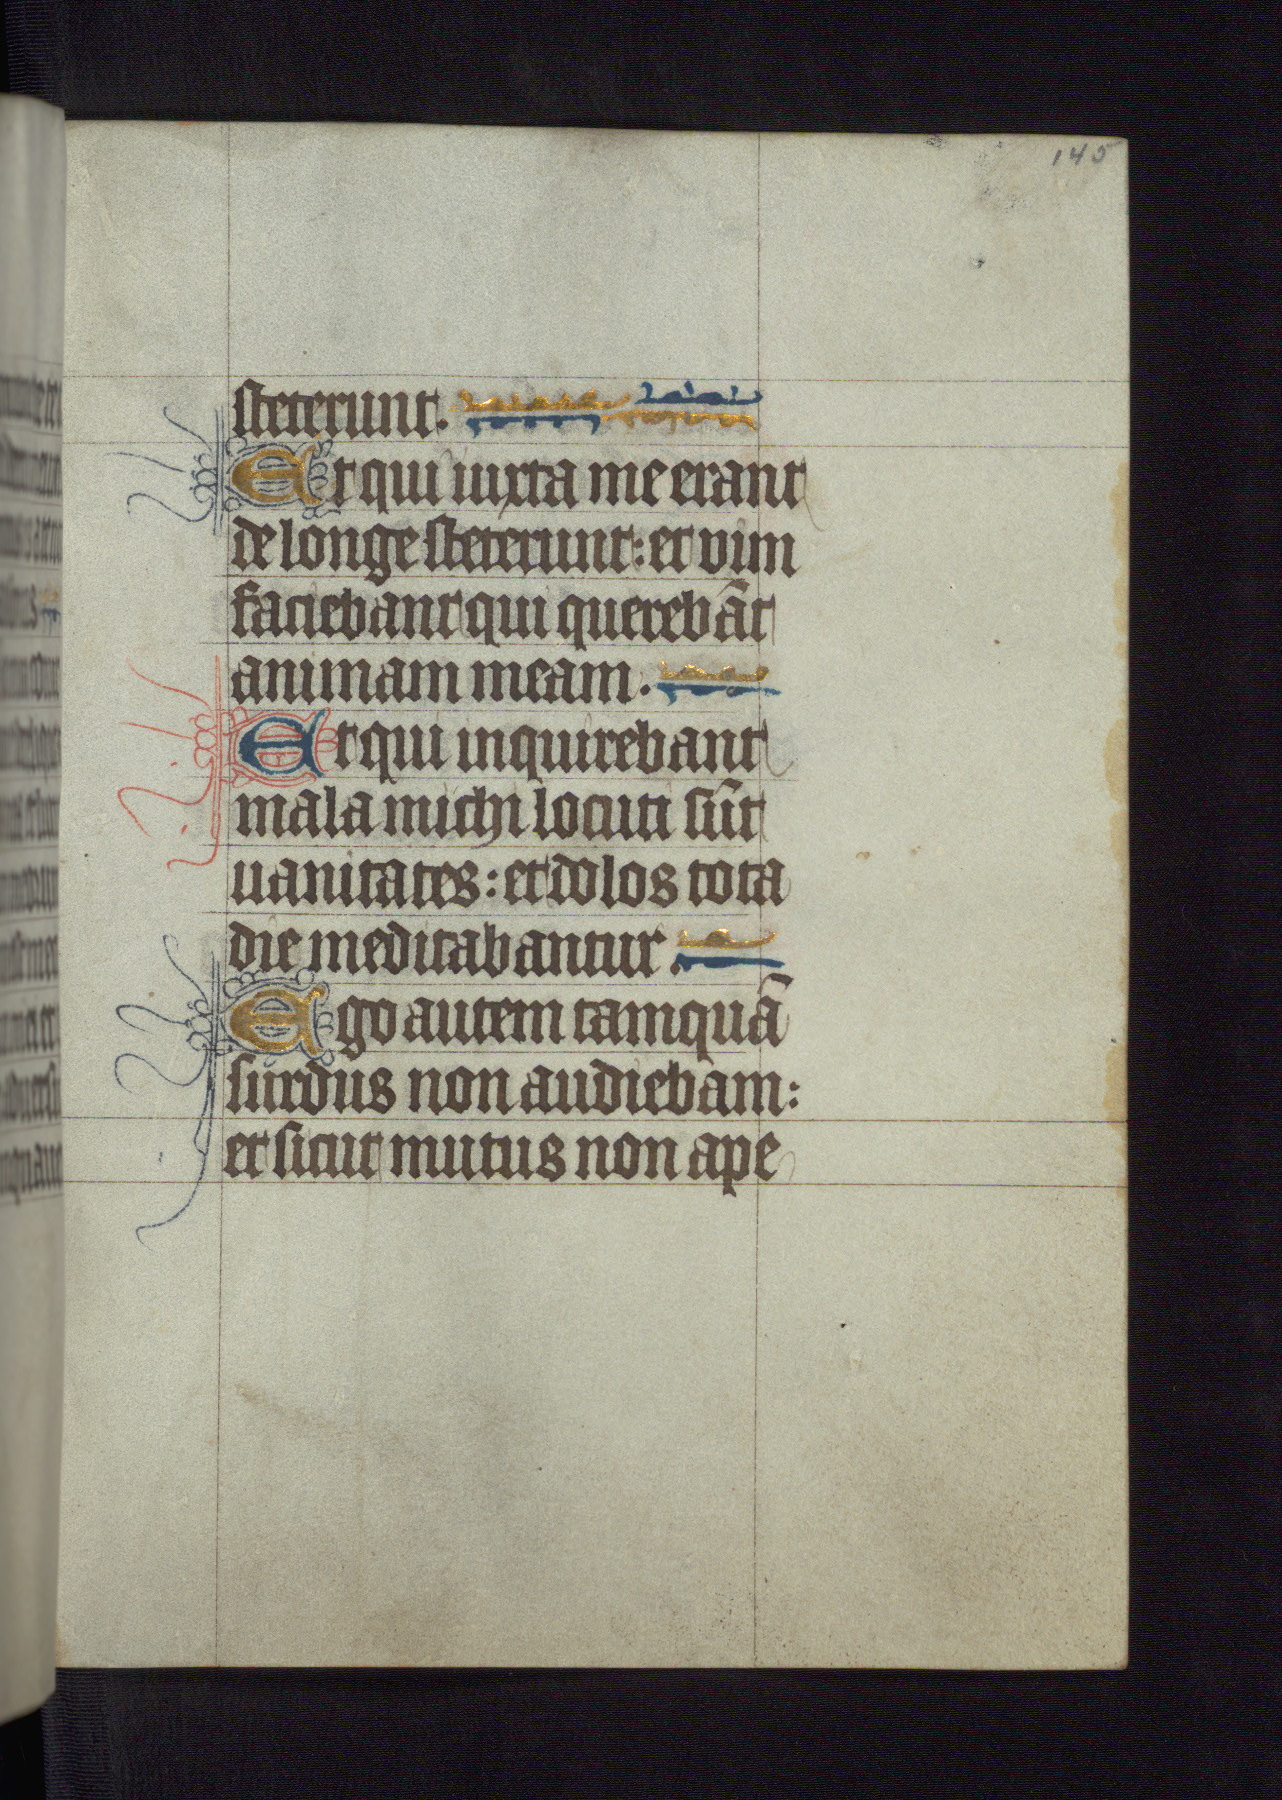 145
steterunt.
Et qui iuxta me erant
de longe steterunt: et vim
faciebant qui querebāt
animam meam.
Et qui inquirebant
mala michi locuti sūt
uanitates: et dolos tota
die meditabantur.
Ego autem tamquā
surdus non audiebam:
et sicut mutus non ape